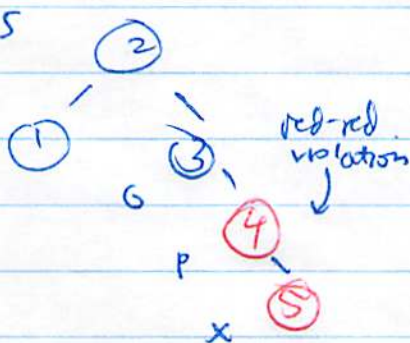 5
2
1
3
red-red
violation
G
4
P
5
X